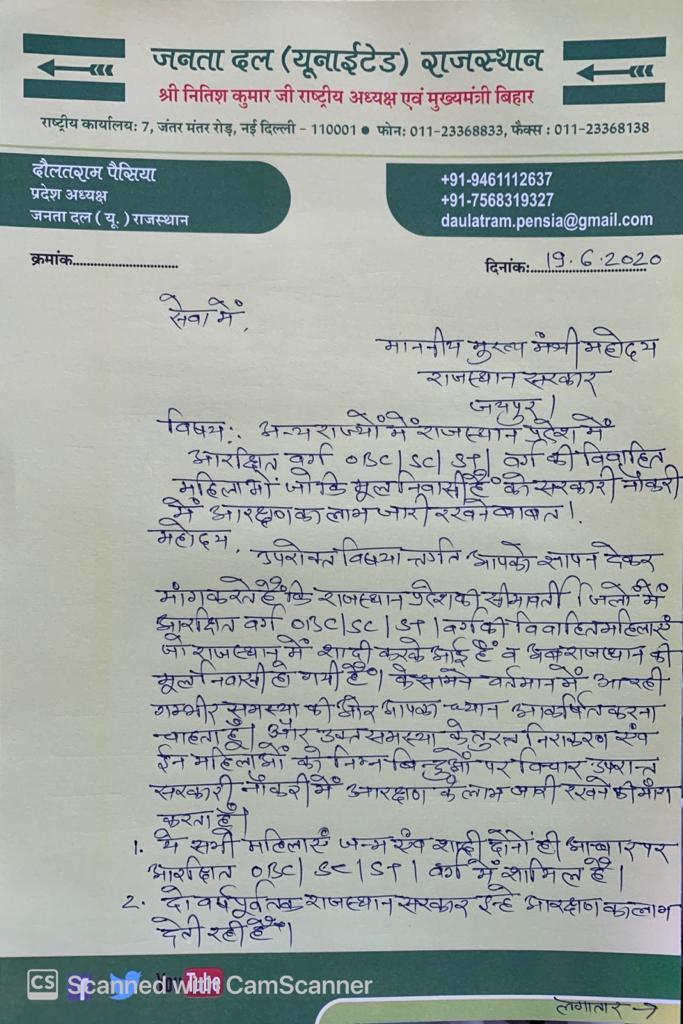 जनता दल (यूनाईटेड) राजस्थान
श्री नितिश कुमार जी राष्ट्रीय अध्यक्ष एवं मुख्यमंत्री बिहार
राष्ट्रीय कार्यालय: 7, जंतर मंतर रोड़, नई दिल्ली - 110001 ● फोन: 011-23368833, फैक्स : 011-23368138
दौलतराम पैसिया
प्रदेश अध्यक्ष
जनता दल ( यू. ) राजस्थान
+91-9461112637
+91-7568319327
daulatram.pensia@gmail.com
क्रमांक............................
दिनांक:..19.6.2020
सेवा में,
माननीय मुख्य मंत्री महोदय
राजस्थान सरकार
जयपुर।
विषय:. अन्य राज्यों में राजस्थान प्रदेश में
आरक्षित वर्ग OBC/SC/ST/ वर्ग की विवाहित
महिलाओं जो कि मूल निवासी है के सरकारी नौकरी
में आरक्षण का लाभ जारी रखने बाबत।
महोदय,
उपरोक्त विषयान्तर्गत आपको ज्ञापन देकर
मांग करते हैं कि राजस्थान प्रदेश की सीमावर्ती जिलों में
आरक्षित वर्ग OBC/SC/ST/ वर्ग की विवाहित महिलाएं
जो राजस्थान में शादी करके आई हैं व अब राजस्थान की
मूल निवासी हो गयी है। के सामने वर्तमान में आ रही
गम्भीर समस्या की ओर आपका ध्यान आकर्षित करना
चाहता हूं। और उक्त समस्या के तुरन्त निराकरण एंव
ईन महिलाओं को निम्न बिन्दुओं पर विचार उपरान्त
सरकारी नौकरी में आरक्षण के लाभ जारी रखने की मांग
करता हूं।
1. ये सभी महिलाएं जन्म एंव शादी दोनों ही आधार पर
आरक्षित OBC/ SC/ST/ वर्ग में शामिल है।
2. दो वर्ष पूर्व तक राजस्थान सरकार इन्हे आरक्षण का लाभ
देती रही है।
You Tube
CS Scanned with CamScanner
लगातार →